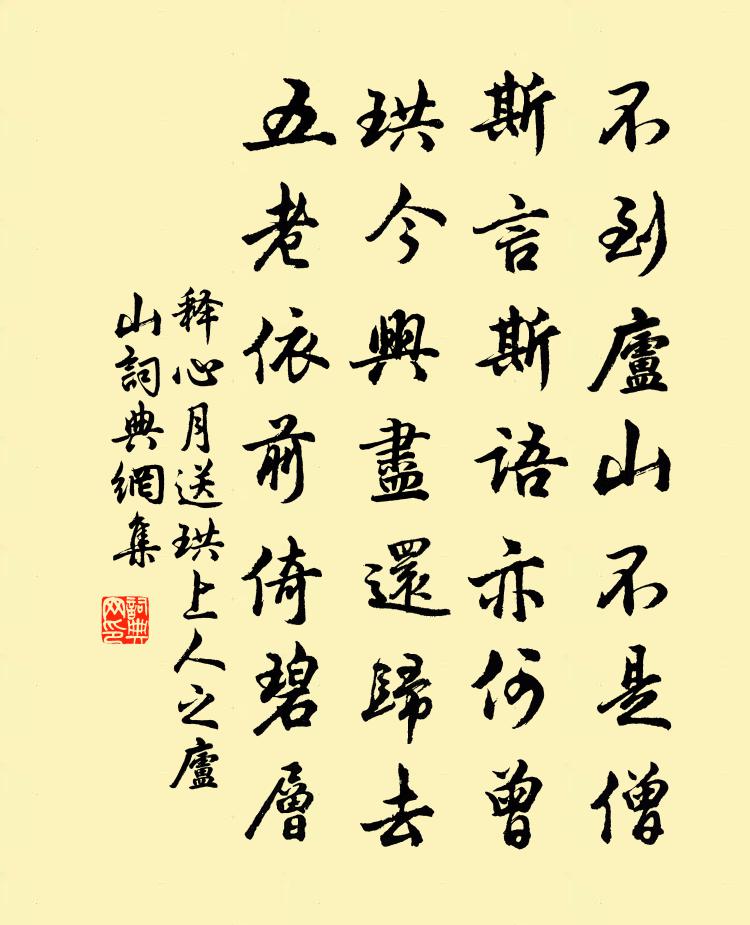 不到廬山不是僧
斯言斯語亦何曾
珙今興盡還歸去
五老依前倚碧層
释心月送珙上人之廬
山詞典網集
詞典
网印